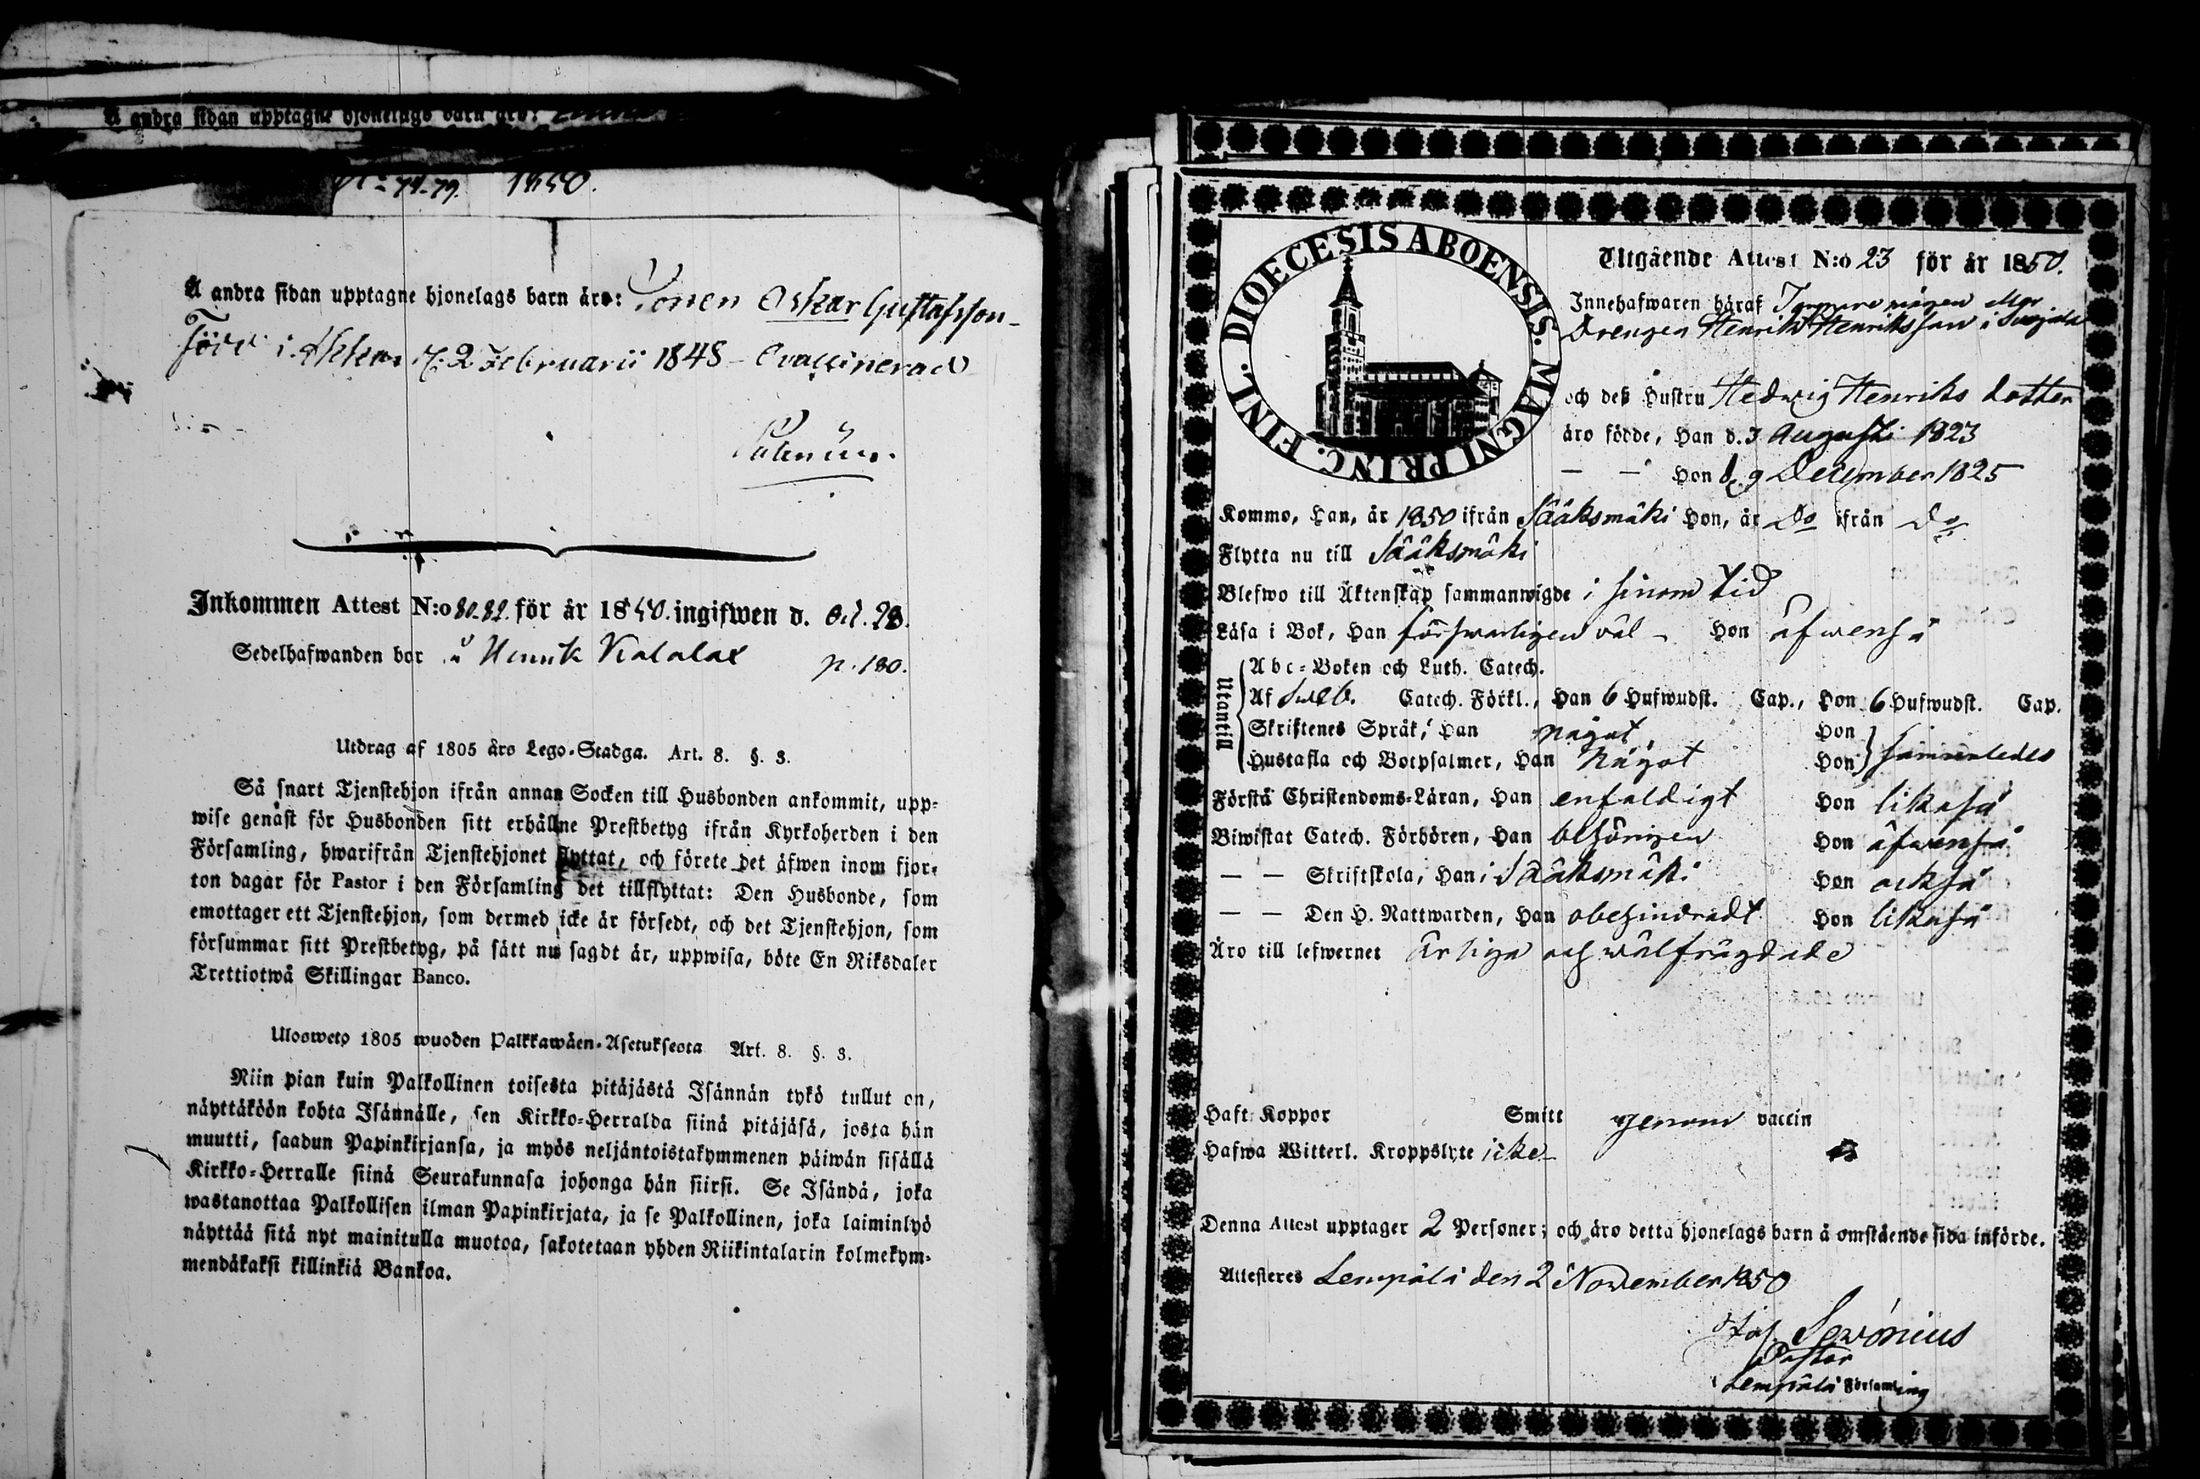 Å andra sidan upptagne hjonelags barn äro:
No 77-79. 1850.
Å andra sidan upptagne hjonelags barn äro: Sonen Oskar Gustafsson
Född i Akkas d. 2 Februarii 1848 – Ovaccinerad
Inkommen Attest N:o 80-82. för år 1850. ingifwen d. Oct. 28.
Sedelhafwanden bor å p. 180.
Utdrag af 1805 års Lego-Stadga. Art. 8. §. 3.
Så snart Tjenstehjon ifrån annan Socken till Husbonden ankommit, upp-
wise genast för Husbonden sitt erhållne Prestbetyg ifrån Kyrkoherden i den
Församling, hwarifrån Tjenstehjonet flyttat, och förete det äfwen inom fjor-
ton dagar för Pastor i den Församling det tillflyttat: Den Husbonde, som
emottager ett Tjenstehjon, som dermed icke är försedt, och det Tjenstehjon, som
försummar sitt Prestbetyg, på sätt nu sagdt är, uppwisa, böte En Riksdaler
Trettiotwå Skillingar Banco.
Ulosweto 1805 wuoden Palkkawäen-Asetuksesta Art. 8. §. 3.
Niin pian kuin Palkollinen toisesta pitäjästä Isännän tykö tullut on,
näyttäköön kohta Isännälle, sen Kirkko-Herralda siinä pitäjäsä, josta hän
muutti, saadun Papinkirjansa, ja myös neljäntoistakymmenen päiwän sisällä
Kirkko-Herralle siinä Seurakunnasa johonga hän siirsi. Se Isändä, joka
wastanottaa Palkollisen ilman Papinkirjata, ja se Palkollinen, joka laiminlyö
näyttää sitä nyt mainitulla muotoa, sakotetaan yhden Riikintalarin kolmekym-
mendäkaksi killinkiä Bankoa.
DIOECESIS ABOENSIS. MAGNI PRINC. FINL.
Utgående Attest N:o 23 för år 1850.
Innehafwaren häraf
Drengen Henrik Henriksson i
och deß Hustru Hedwig Henriks dotter
äro födde, Han d. 3 Augusti 1823
— — Hon d. 9 December 1825
Kommo, Han, år 1850 ifrån Sääksmäki Hon, år Do ifrån Do
Flytta nu till Sääksmäki
Blefwo till Äktenskap sammanwigde i sinom tid
Läsa i Bok, Han försvarligen väl – Hon äfwenså
Utantill
Abc-Boken och Luth. Catech.
Af Sweb. Catech. Förkl., Han 6 Hufwudst. Cap., Hon 6 Hufwudst. Cap.
Skriftenes Språk, Han något, Hon
Hustafla och Botpsalmer, Han Något Hon sammaledes
Förstå Christendoms-Läran, Han enfaldigt Hon likaså
Biwistat Catech. Förhören, Han behörigen Hon äfwenså
— — Skriftskola, Han i Sääksmäki Hon också
— — Den H. Nattwarden, Han obehindradt Hon likaså
Äro till lefwernet ärliga och wälfrägdade
Haft Koppor Smitt genom vaccin
Hafwa Witterl. Kroppslyte icke
Denna Attest upptager 2 Personer; och äro detta hjonelags barn å omstående sida införde.
Attesteres Lempälä den 2 November 1850
Sewónius
Pastor
Lempälä Församling